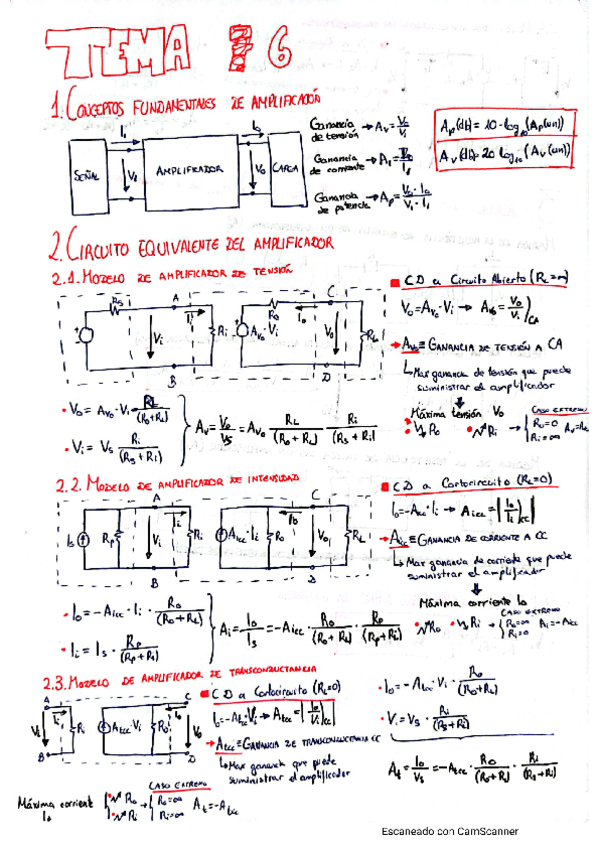 TEMA # 6
1. CONCEPTOS FUNDAMENTALES DE AMPLIFICACIÓN
SEÑAL
I₁
V₁
AMPLIFICADOR
I₀
V₀
CARGA
Ganancia de tensión → Aᵥ = V₀/V₁
Ganancia de corriente → A₁ = I₀/I₁
Ganancia de potencia → Aₚ = V₀·I₀/V₁·I₁
Aₚ(db) = 10·log₁₀(Aₚ(un))
Aᵥ(db) = 20 log₁₀(Aᵥ(un))
2. CIRCUITO EQUIVALENTE DEL AMPLIFICADOR
2.1. MODELO DE AMPLIFICADOR DE TENSIÓN
Rs A Ii Ri Vi B
Aᵥ₀·Vi R₀ I₀ C V₀ D RL
CD a Circuito Abierto (RL=∞)
V₀ = Aᵥ₀·Vi → Aᵥ₀ = V₀/Vi)CA
Aᵥ₀ ≡ GANANCIA DE TENSIÓN A CA
↳ Max ganancia de tensión que puede
suministrar el amplificador
Máxima tensión V₀
CASO EXTREMO
R₀=0
Ri=∞
• V₀ = Aᵥ₀·Vi · RL/(R₀+RL)
• Vi = Vs Ri/(Rs+Ri)
Aᵥ = V₀/Vs = Aᵥ₀ RL/(R₀+RL) · Ri/(Rs+Ri)
2.2. MODELO DE AMPLIFICADOR DE INTENSIDAD
Is Rp A Ii Vi Ri B
Aicc·Ii R₀ I₀ C V₀ D RL
CD a Cortocircuito (RL=0)
I₀ = -Aicc·Ii → Aicc = |I₀/Ii)cc|
Aicc ≡ GANANCIA DE CORRIENTE A CC
↳ Max ganancia de corriente que puede
suministrar el amplificador
Máxima corriente I₀
CASO EXTREMO
R₀=∞
Ri=0
Ai = -Aicc
• I₀ = -Aicc·Ii · R₀/(R₀+RL)
• Ii = Is · Rp/(Rp+Ri)
Ai = I₀/Is = -Aicc · R₀/(R₀+RL) · Rp/(Rp+Ri)
2.3. MODELO DE AMPLIFICADOR DE TRANSCONDUCTANCIA
A Ii Vi Ri B
Atcc·Vi R₀ I₀ C V₀ D
CD a Cortocircuito (RL=0)
I₀ = -Atcc·Vi → Atcc = |I₀/Vi)cc|
Atcc ≡ GANANCIA DE TRANSCONDUCTANCIA CC
↳ Max ganancia que puede
suministrar el amplificador
• I₀ = -Atcc·Vi · R₀/(R₀+RL)
• Vi = Vs · Ri/(Rs+Ri)
At = I₀/Vs = -Atcc · R₀/(R₀+RL) · Ri/(Rs+Ri)
Máxima corriente I₀
CASO EXTREMO
R₀=∞
Ri=∞
At = -Atcc
Escaneado con CamScanner